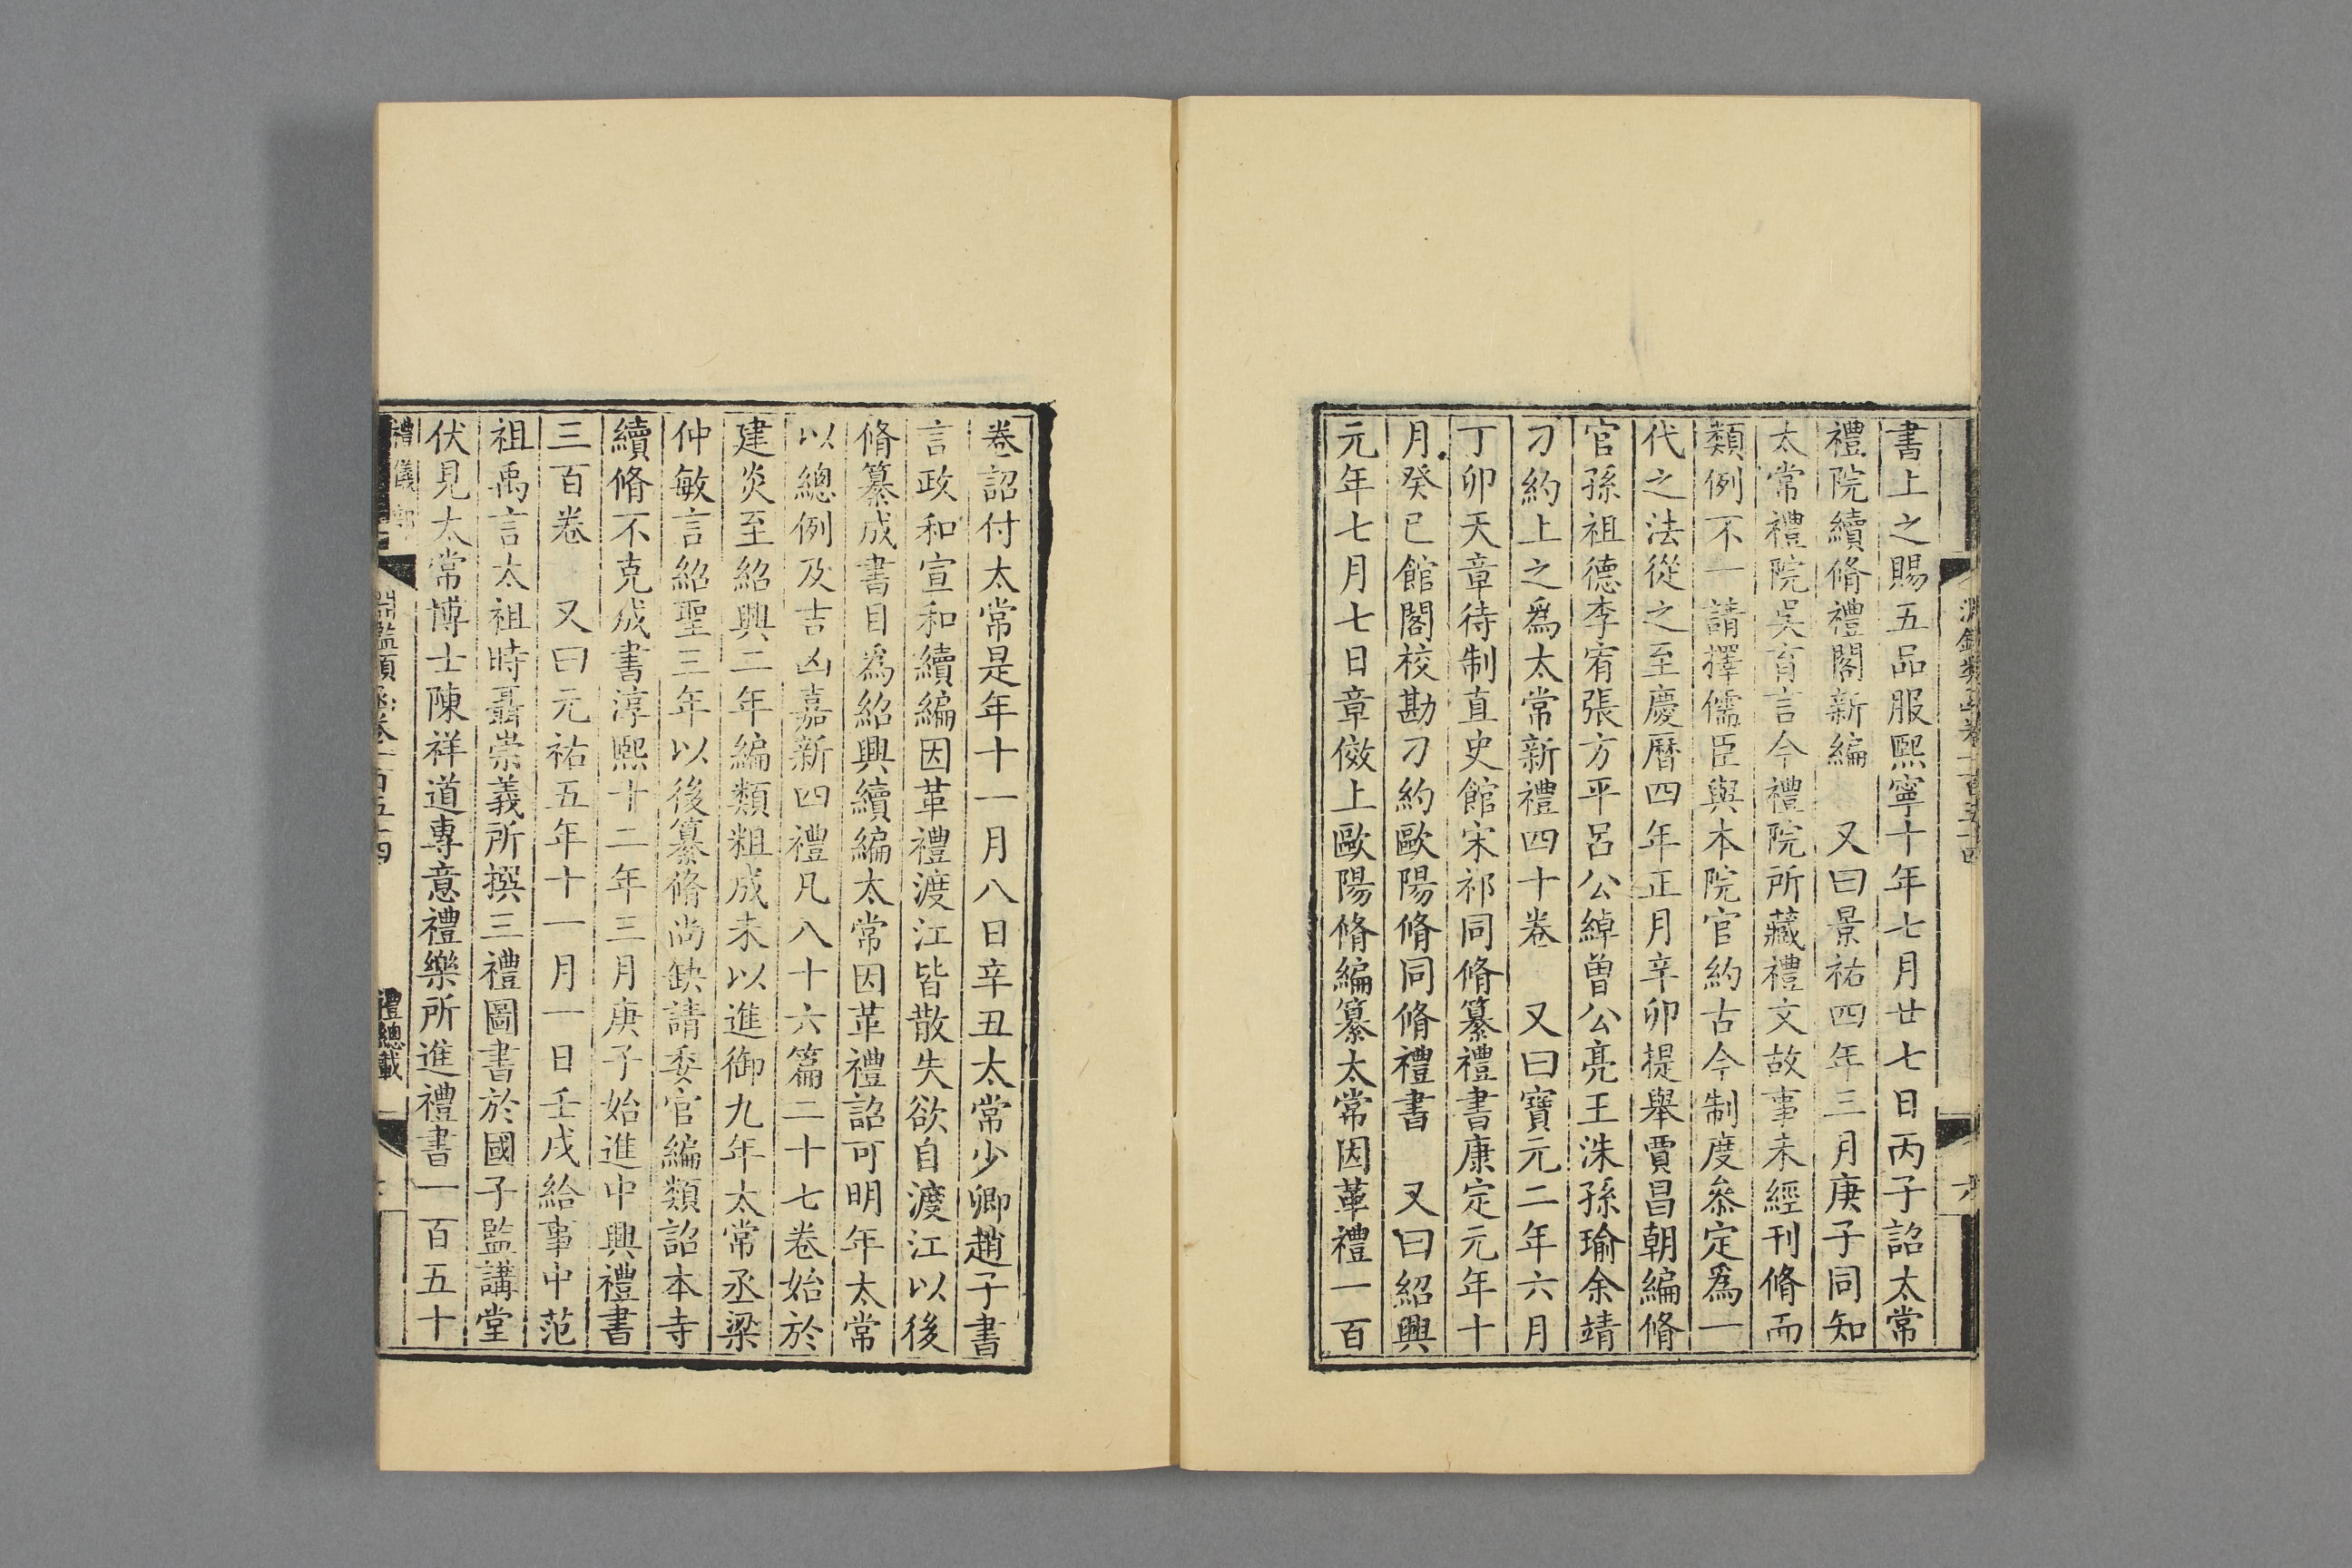 書上之賜五品服熙寧十年七月廿七日丙子詔太常
禮院續脩禮閣新編　又曰景祐四年三月庚子同知
太常禮院吳育言今禮院所藏禮文故事未經刊脩而
類例不一請擇儒臣與本院官約古今制度叅定爲一
代之法從之至慶曆四年正月辛卯提舉賈昌朝編脩
官孫祖德李宥張方平呂公綽曾公亮王洙孫瑜余靖
刁約上之爲太常新禮四十卷　又曰寶元二年六月
丁卯天章待制直史館宋祁同脩纂禮書康定元年十
月癸已館閣校勘刁約歐陽脩同脩禮書　又曰紹興
元年七月七日章傚上歐陽脩編纂太常因革禮一百
卷詔付太常是年十一月八日辛丑太常少卿趙子書
言政和宣和續編因革禮渡江皆散失欲自渡江以後
脩纂成書目爲紹興續編太常因革禮詔可明年太常
以總例及吉凶嘉新四禮凡八十六篇二十七卷始於
建炎至紹興二年編類粗成未以進御九年太常丞梁
仲敏言紹聖三年以後纂脩尚缺請委官編類詔本寺
續脩不克成書淳熙十二年三月庚子始進中興禮書
三百卷　又曰元祐五年十一月一日壬戌給事中范
祖禹言太祖時聶崇義所撰三禮圖書於國子監講堂
伏見太常博士陳祥道專意禮樂所進禮書一百五十
禮儀部
淵鑑類函卷一百五十四
禮總載